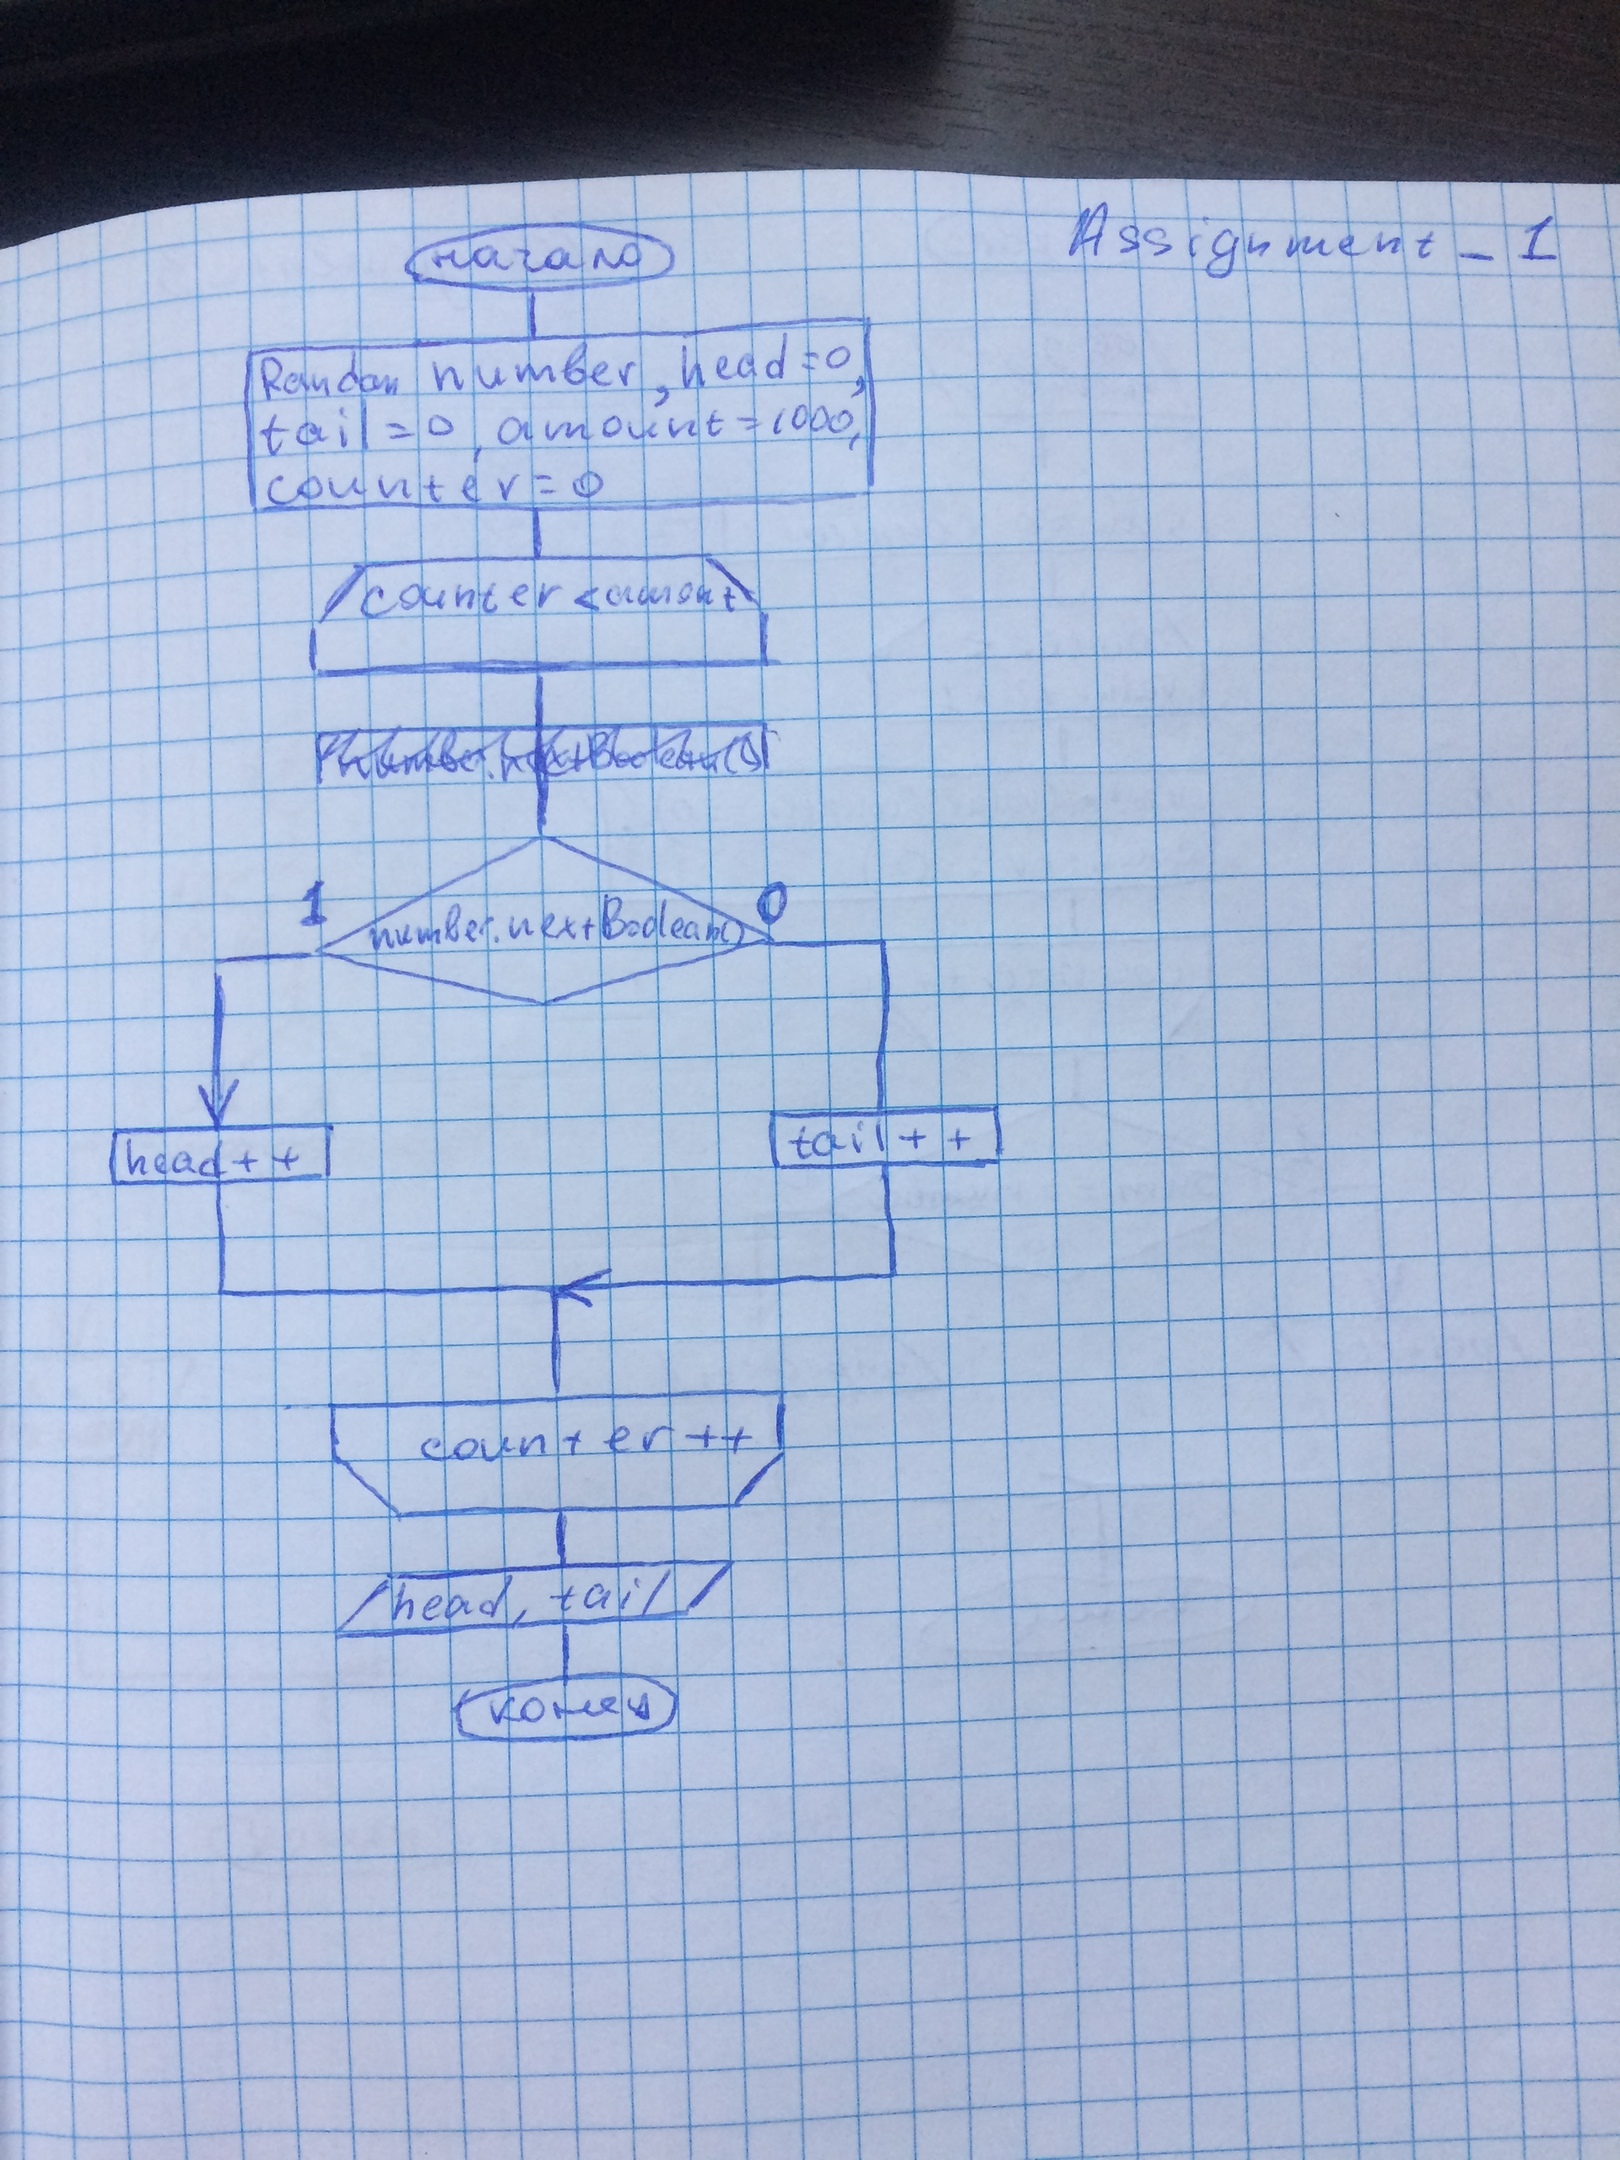 Assignment_1
начало
Random number, head=0,
tail=0, amount=1000,
counter=0
counter<amount
number.nextBoolean()
1
number.nextBoolean()
0
head++
tail++
counter++
head, tail
конец